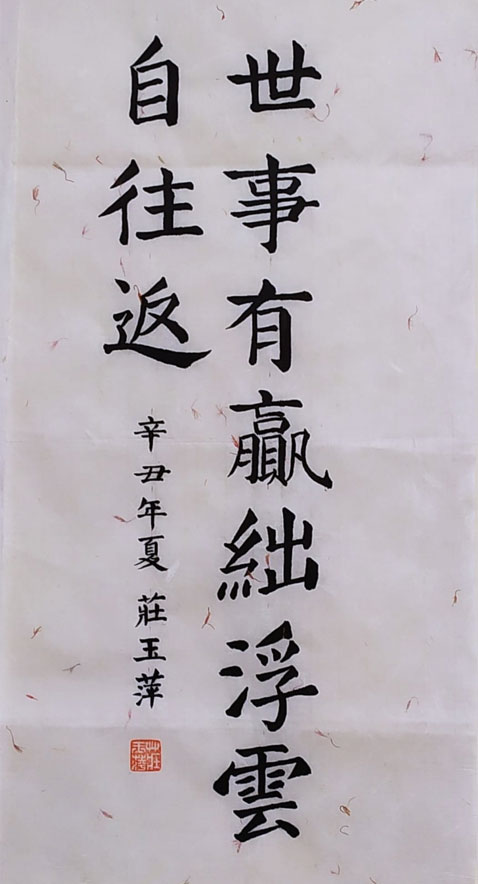 世事有贏絀浮雲
自往返
辛丑年夏 莊玉萍
莊玉萍